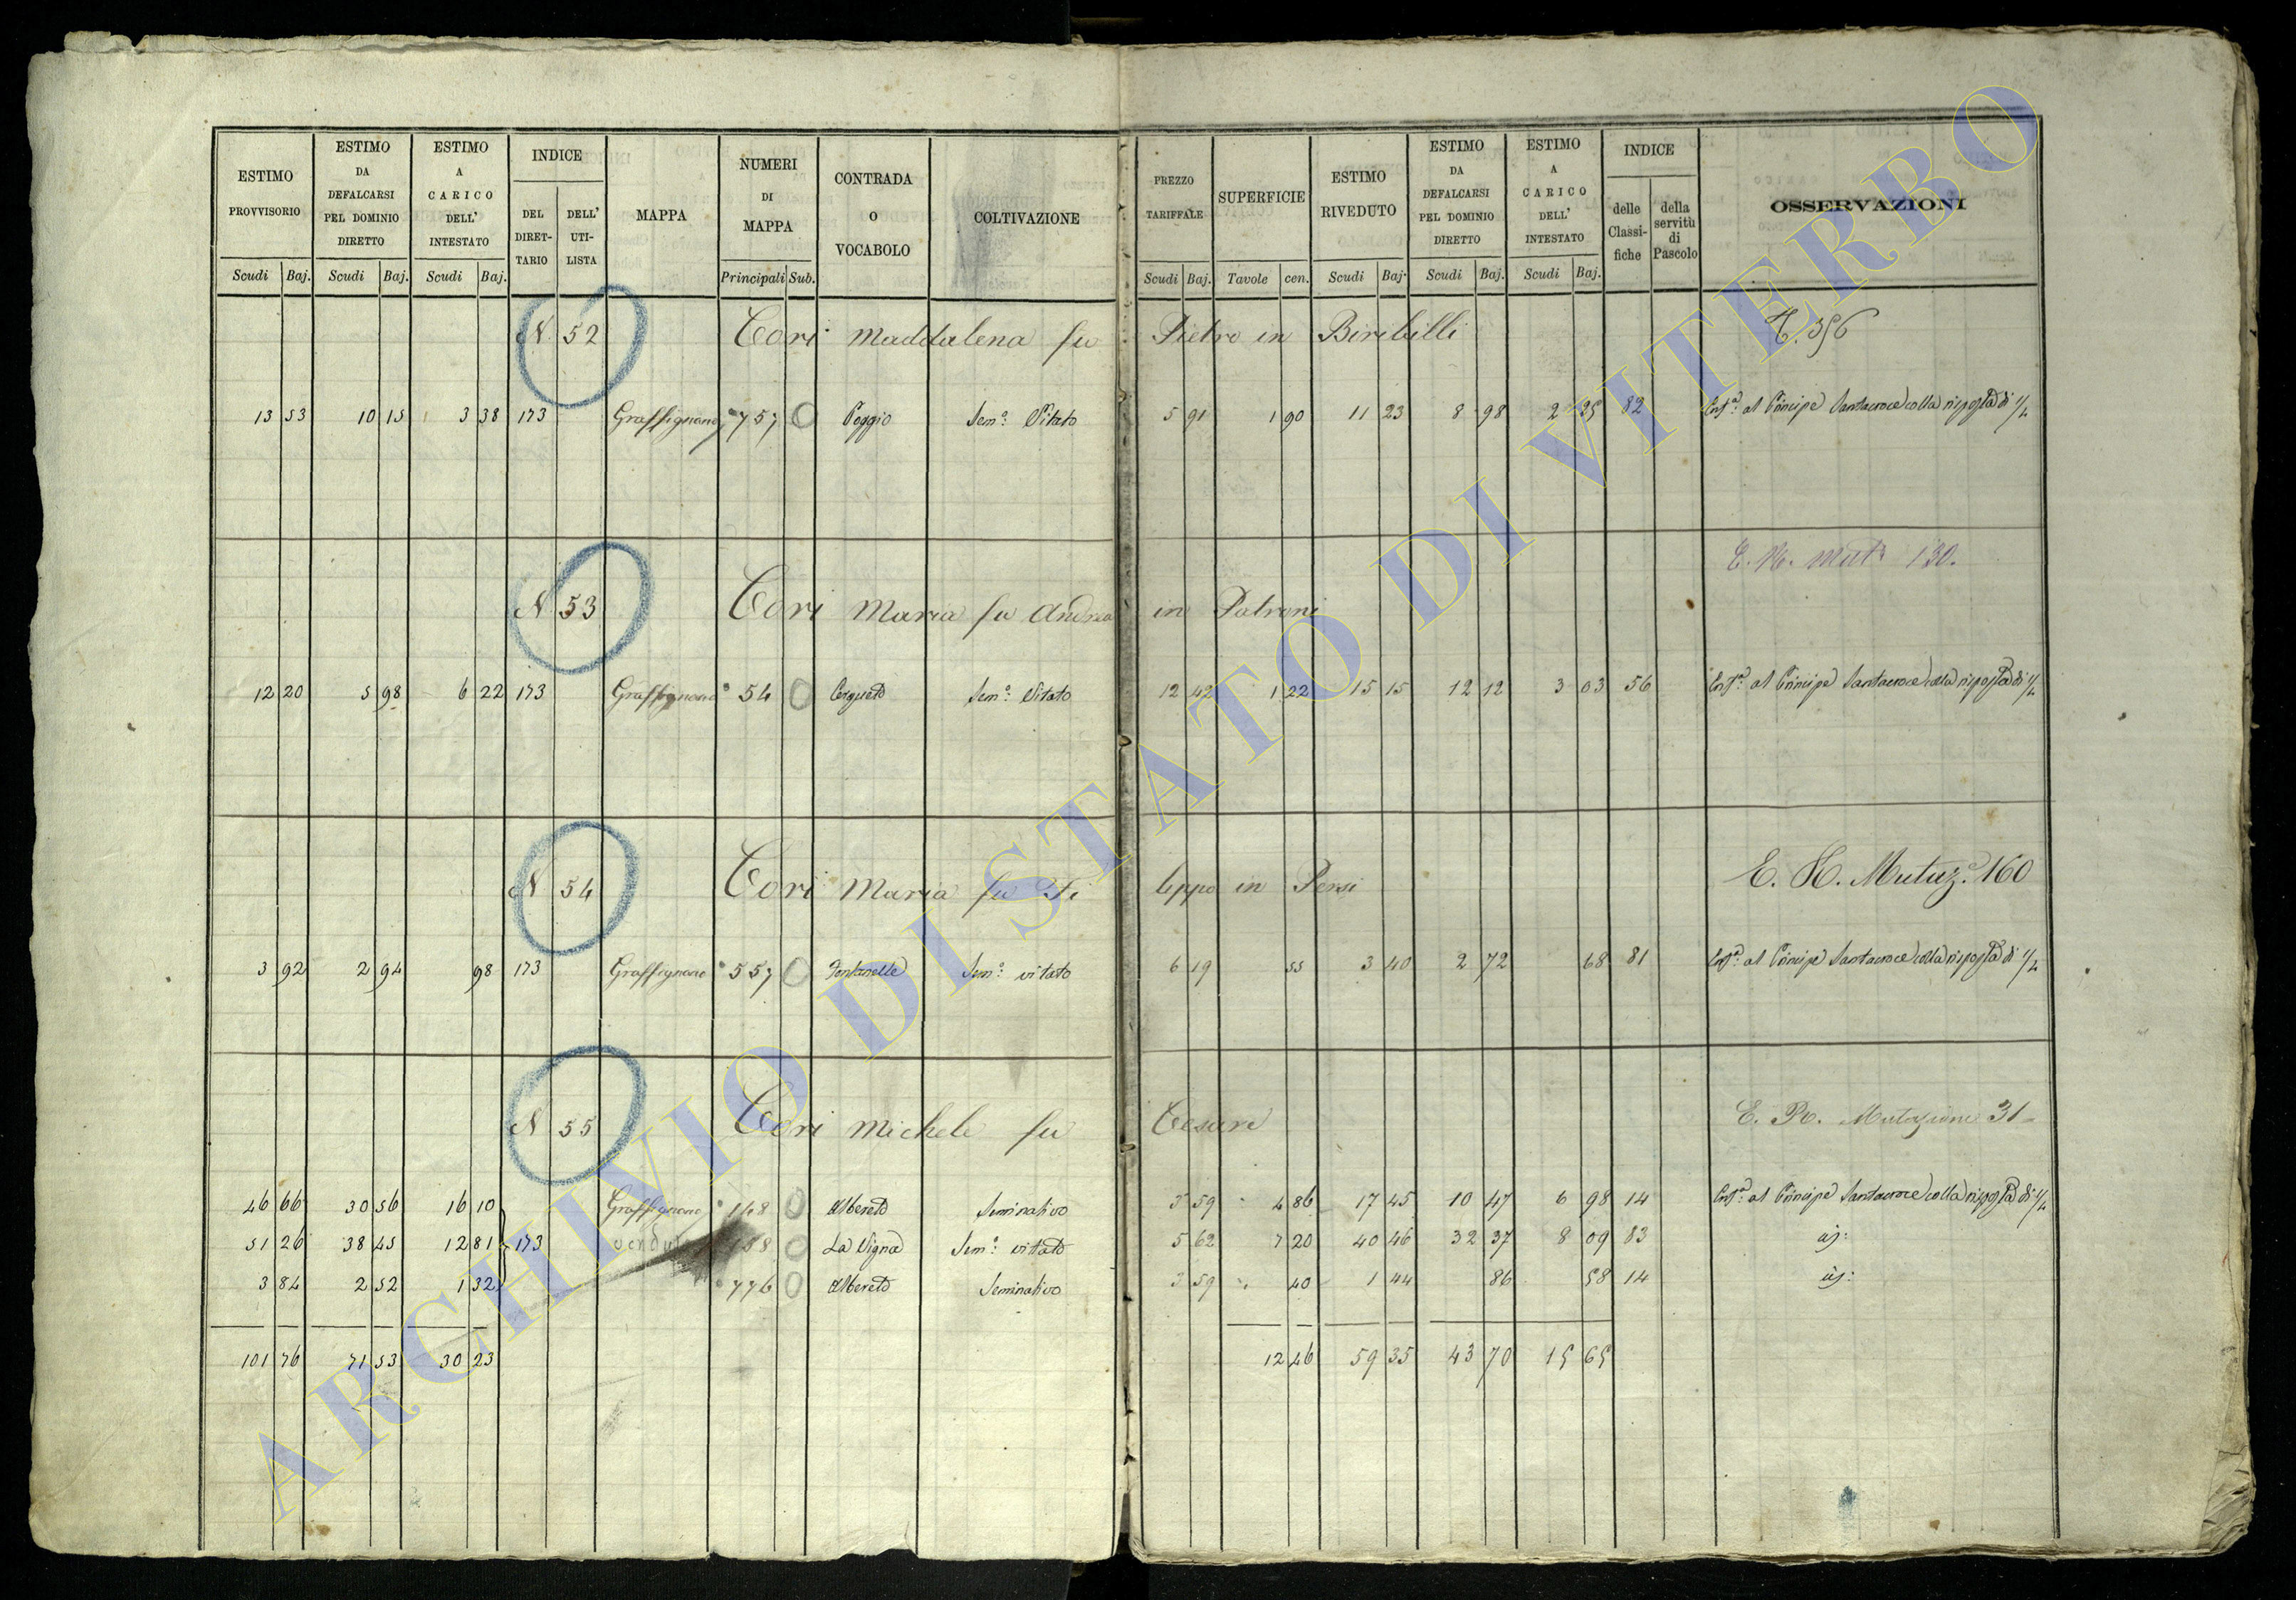 ESTIMO PROVVISORIO Scudi Baj. ESTIMO DA DEFALCARSI PEL DOMINIO DIRETTO Scudi Baj. ESTIMO A CARICO DELL' INTESTATO Scudi Baj. INDICE DEL DIRET- TARIO DELL' UTI- LISTA MAPPA NUMERI DI MAPPA Principali Sub. CONTRADA O VOCABOLO COLTIVAZIONE PREZZO TARIFFALE Scudi Baj. SUPERFICIE Tavole cen. ESTIMO RIVEDUTO Scudi Baj. ESTIMO DA DEFALCARSI PEL DOMINIO DIRETTO Scudi Baj. ESTIMO A CARICO DELL' INTESTATO Scudi Baj. INDICE delle Classi- fiche della servitù di Pascolo OSSERVAZIONI
N 52 Cori Maddalena fu Pietro in Biribilli 356
13 53 10 15 3 38 173 Graffignano 757 Poggio Sem.o Vitato 5 91 1 90 11 23 8 98 2 25 82 al Principe Santacroce colla risposta di 1/4
E. R. Mut. 130.
N 53 Cori Maria fu Andrea in Patroni
12 20 5 98 6 22 173 Graffignano 54 Cerqueto Sem.o Vitato 12 42 1 22 15 15 12 12 3 03 56 al Principe Santacroce colla risposta di 1/4
N 54 Cori Maria fu Filippo in Persi E. R. Mutaz. 160
3 92 2 94 98 173 Graffignano 557 Fontanelle Sem.o vitato 6 19 55 3 40 2 72 68 81 al Principe Santacroce colla risposta di 1/4
N 55 Cori Michele fu Cesare E. R. Mutazione 31
46 66 30 56 16 10 Graffignano 148 Albereto Seminativo 3 59 4 86 17 45 10 47 6 98 14 al Principe Santacroce colla risposta di 1/4
51 26 38 45 12 81 173 158 La Vigna Sem.o vitato 5 62 7 20 40 46 32 37 8 09 83
3 84 2 52 1 32 776 Albereto Seminativo 3 59 40 1 44 86 58 14
101 76 71 53 30 23 12 46 59 35 43 70 15 65
ARCHIVIO DI STATO DI VITERBO